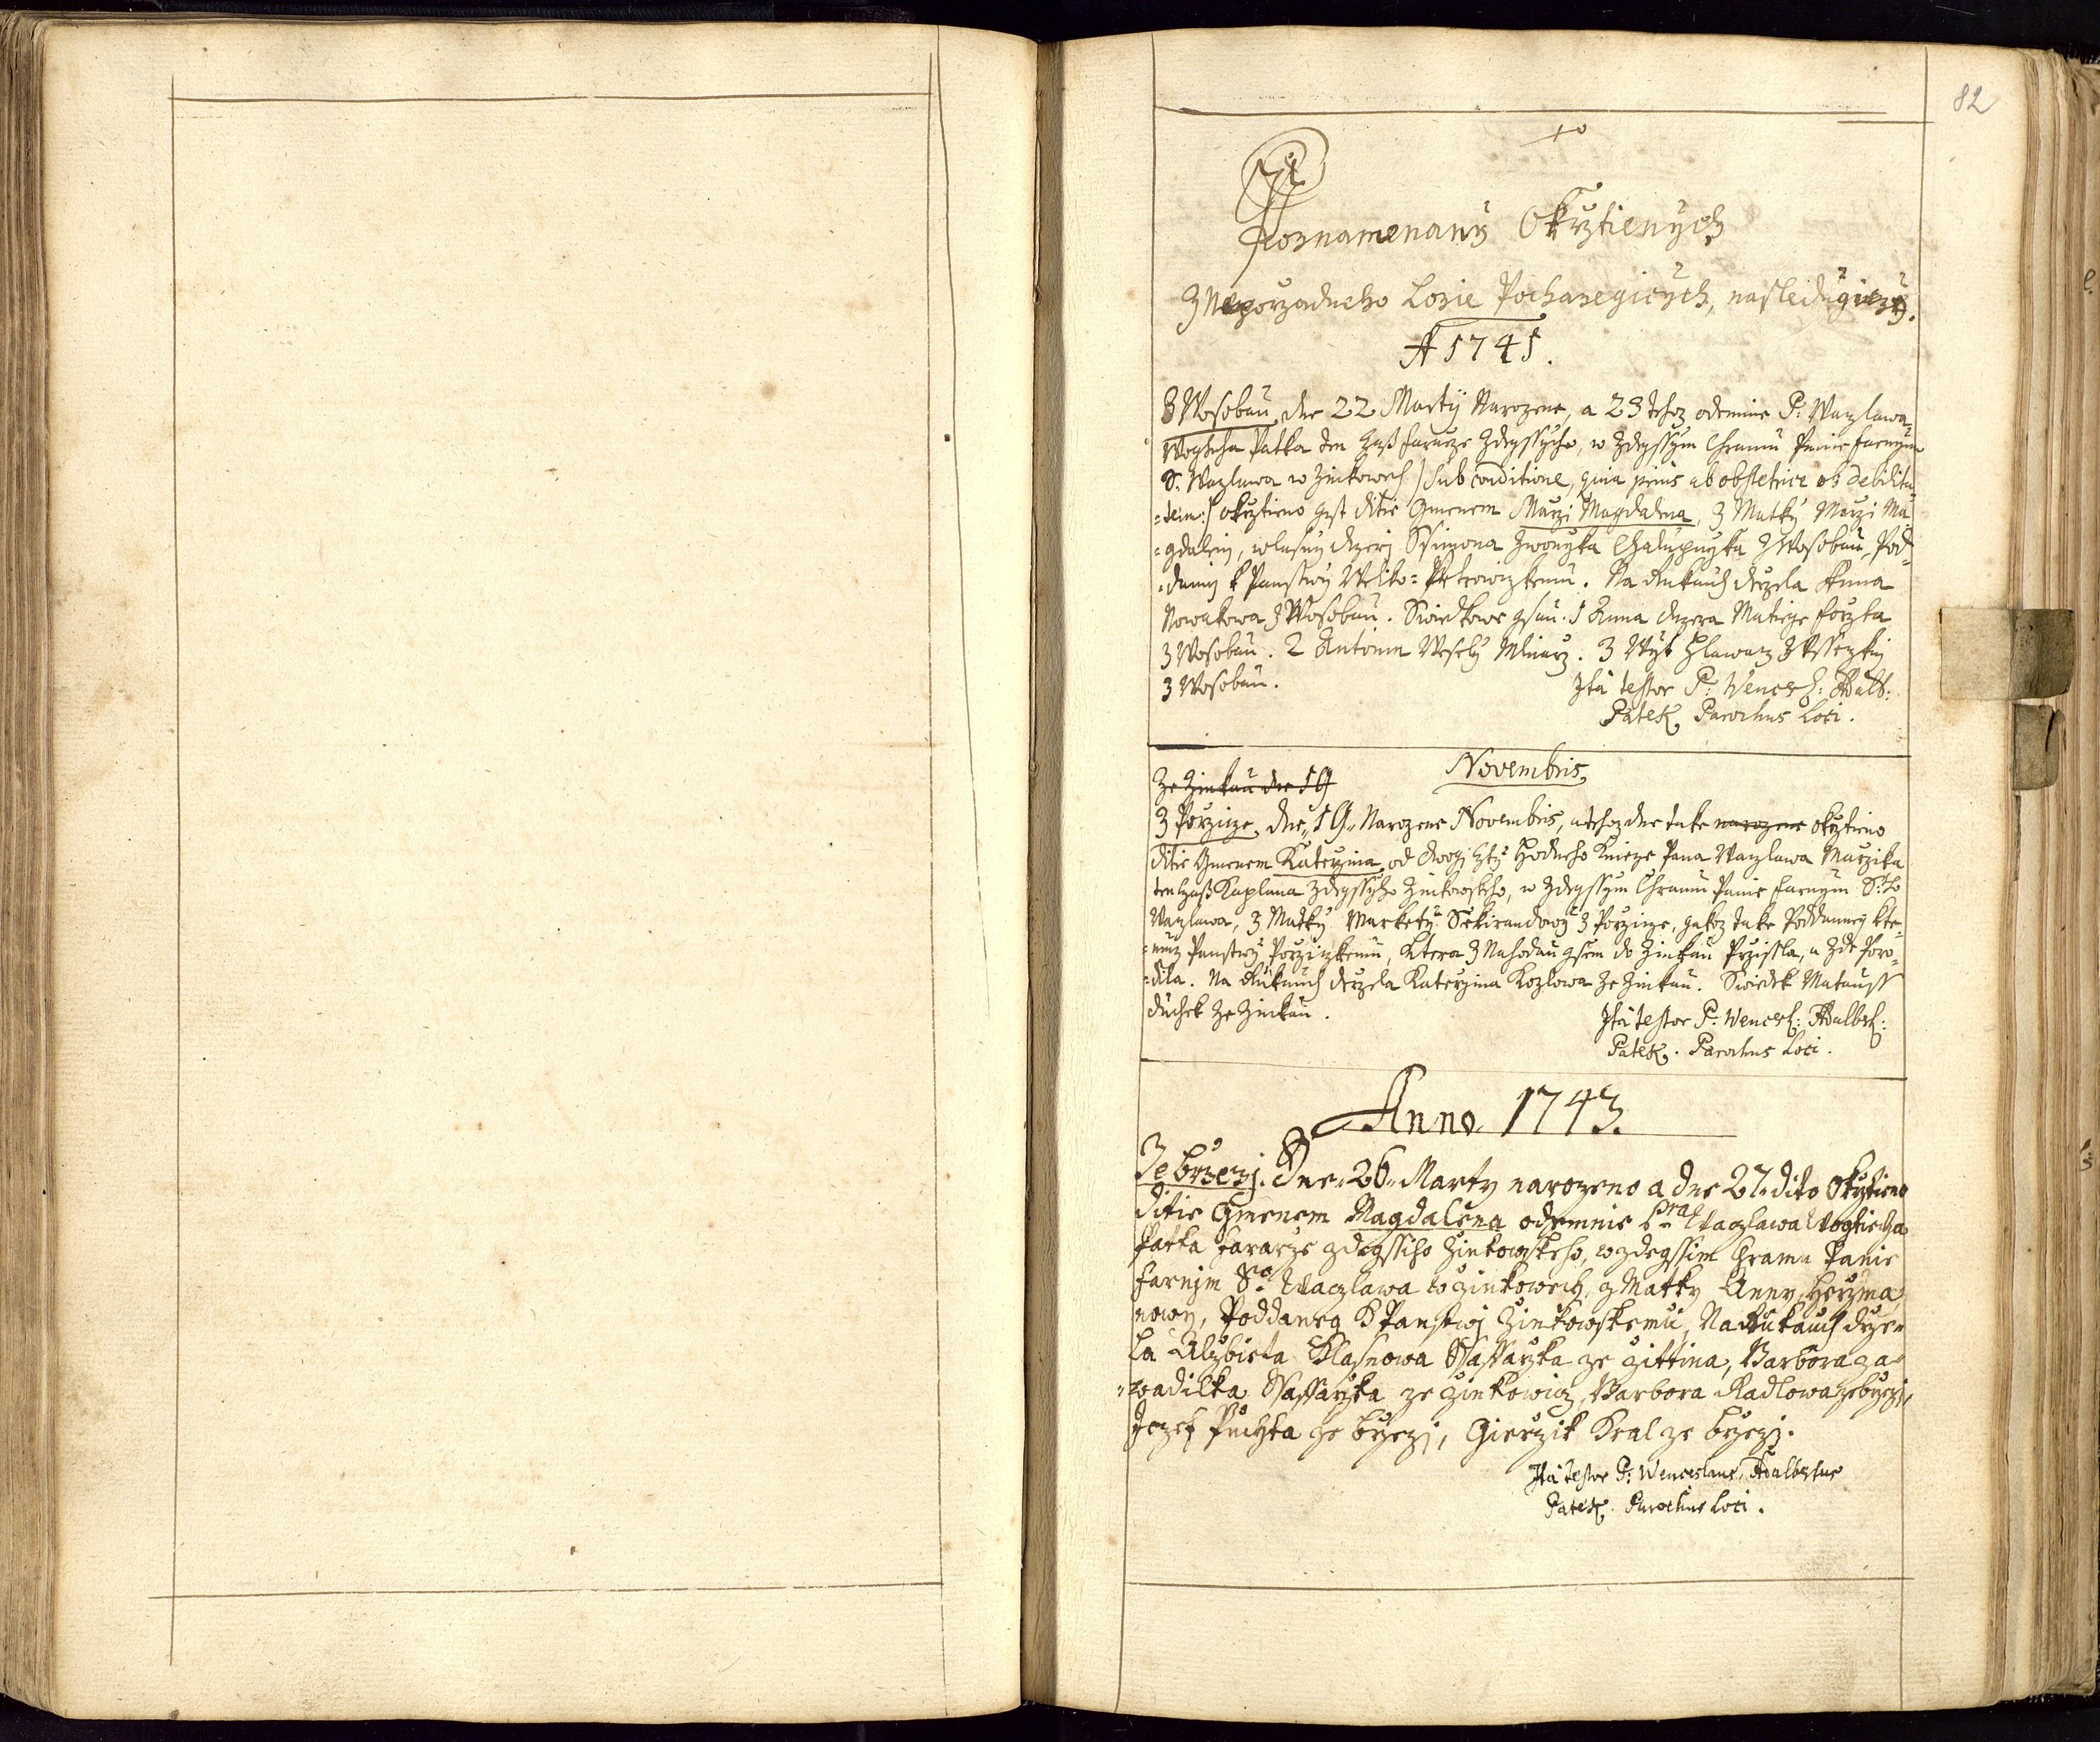 82
Poznamenany Okrztienych
Z Neporzadneho Lozie Pochazegiczych, nasledugiczy.
A 1741.
Z Wosobau dne 22 Martij Narozene, a 23 tehoz odemne P: Waczlawa
Wogtecha Patka ten czaß Faraze Zdegssyho, w Zdegssym Chramu Panie Farnym
S. Waczlawa w Zinkowech /: sub conditione, quia prius ab obstetrice ob debilita
=tem :/ okrztieno gest ditie Gmenem Marzi Magdalena, Z Matky Marzi Ma
=gdaleny, wlasny dczery Ssimona Zwonyka Chalupnyka Z Wosobau, Pod=
=dany k Panstwy Weliko= Petrowiczkemu. Na Rukauch drzela Anna
Nowakowa Z Wosobau. Swiedkowe gsau. 1 Anna dczera Matiege Forzta
Z Wosobau. 2 Antonin Wesely Mlinarz. 3 Wyt Hlawacz
Z Wosobau.
Ita testor P: Wencesl: Adalb:
Patek, Parochus Loci.
Novembris,
Ze Zinkau dne 19
Z Porzicze, dne 19 Narozene Novembris, a tehoz dne take narozene okrztieno
ditie Gmenem Katerzina od dwogi Cti Hodneho Knieze Pana Waczlawa Marzika
ten czaß Kaplana Zdegssyho Zinkowskeho, w Zdegssym Chramu Panie Farnym S:to
Waczlawa, Z Matky Markety Sekirandowy Z Porzicze, gakoz take Poddanneg kte=
=muz Panstwy Porziczkemu, Ktera Z Nahodau gsem do Zinkau Przissla, a Zde Poro=
=dila. Na Rukauch drzela Katerzina Kozlowa Ze Zinkau. Swiedek Matauss
Duchek Ze Zinkau.
Ita testor P: Wencesl: Adalbert:
Patek. Parochus Loci.
Anno 1743.
Ze brzezj. Dne 26 Marty narozeno a dne 27 dito Okrztieno
ditie Gmenem Magdalena odemnie Pra Waczlawa Wogtiecha
Patka Fararze zdegssiho Zinkowskeho, w zdegssim Chramu Panie
Farnjm S:o Waczlawa w Zinkowech, z Matky Anny Herzma
nowy, Poddaneg K Panstwj Zinkowskemu, Na Rukauch drze=
la Alzbieta Klasnowa Ssaffarzka ze Zittina, Barbora za=
=wadilka Ssaffarzka ze Zinkowicz, Barbora Radlowa ze brzezj,
Jozef Puchta ze brzezj, Girzik Kral ze brzezj.
Ita testor P: Wenceslaus Adalbertus
Patek. Parochus Loci.